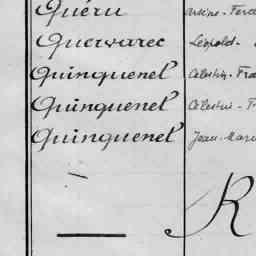 Quéru Arsène-
Quervarec Léopold-
Quinquenel Célestin-
Quinquenel Célestin-
Quinquenel Jean-
R